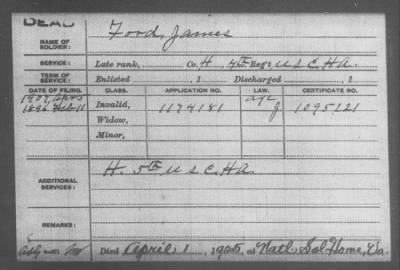 DEAD
NAME OF SOLDIER: Ford, James
SERVICE: Late rank, Co. H, 4th Reg't U S C. H A.
TERM OF SERVICE: Enlisted , 1 Discharged , 1
DATE OF FILING. CLASS. APPLICATION NO. LAW. CERTIFICATE NO.
1907, Apr 5 age
1896 Feb 11 Invalid, 1174181 J 1095121
Widow,
Minor,
ADDITIONAL SERVICES: H. 5th U S C. H A.
REMARKS:
Died April 1, 1925, at Natl. Sol Home, Va.